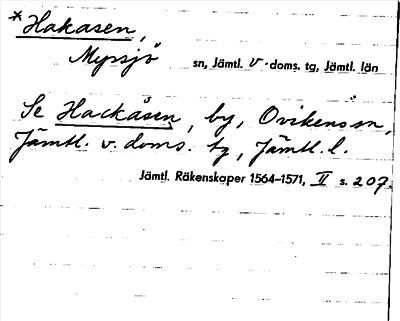 *Hakasen,
Myssjö sn, Jämtl. v. doms. tg, Jämtl. län
Se Hackåsen, by, Ovikens sn,
Jämtl. v. doms. tg, Jämtl. l.
Jämtl. Räkenskaper 1564–1571, II s. 207.